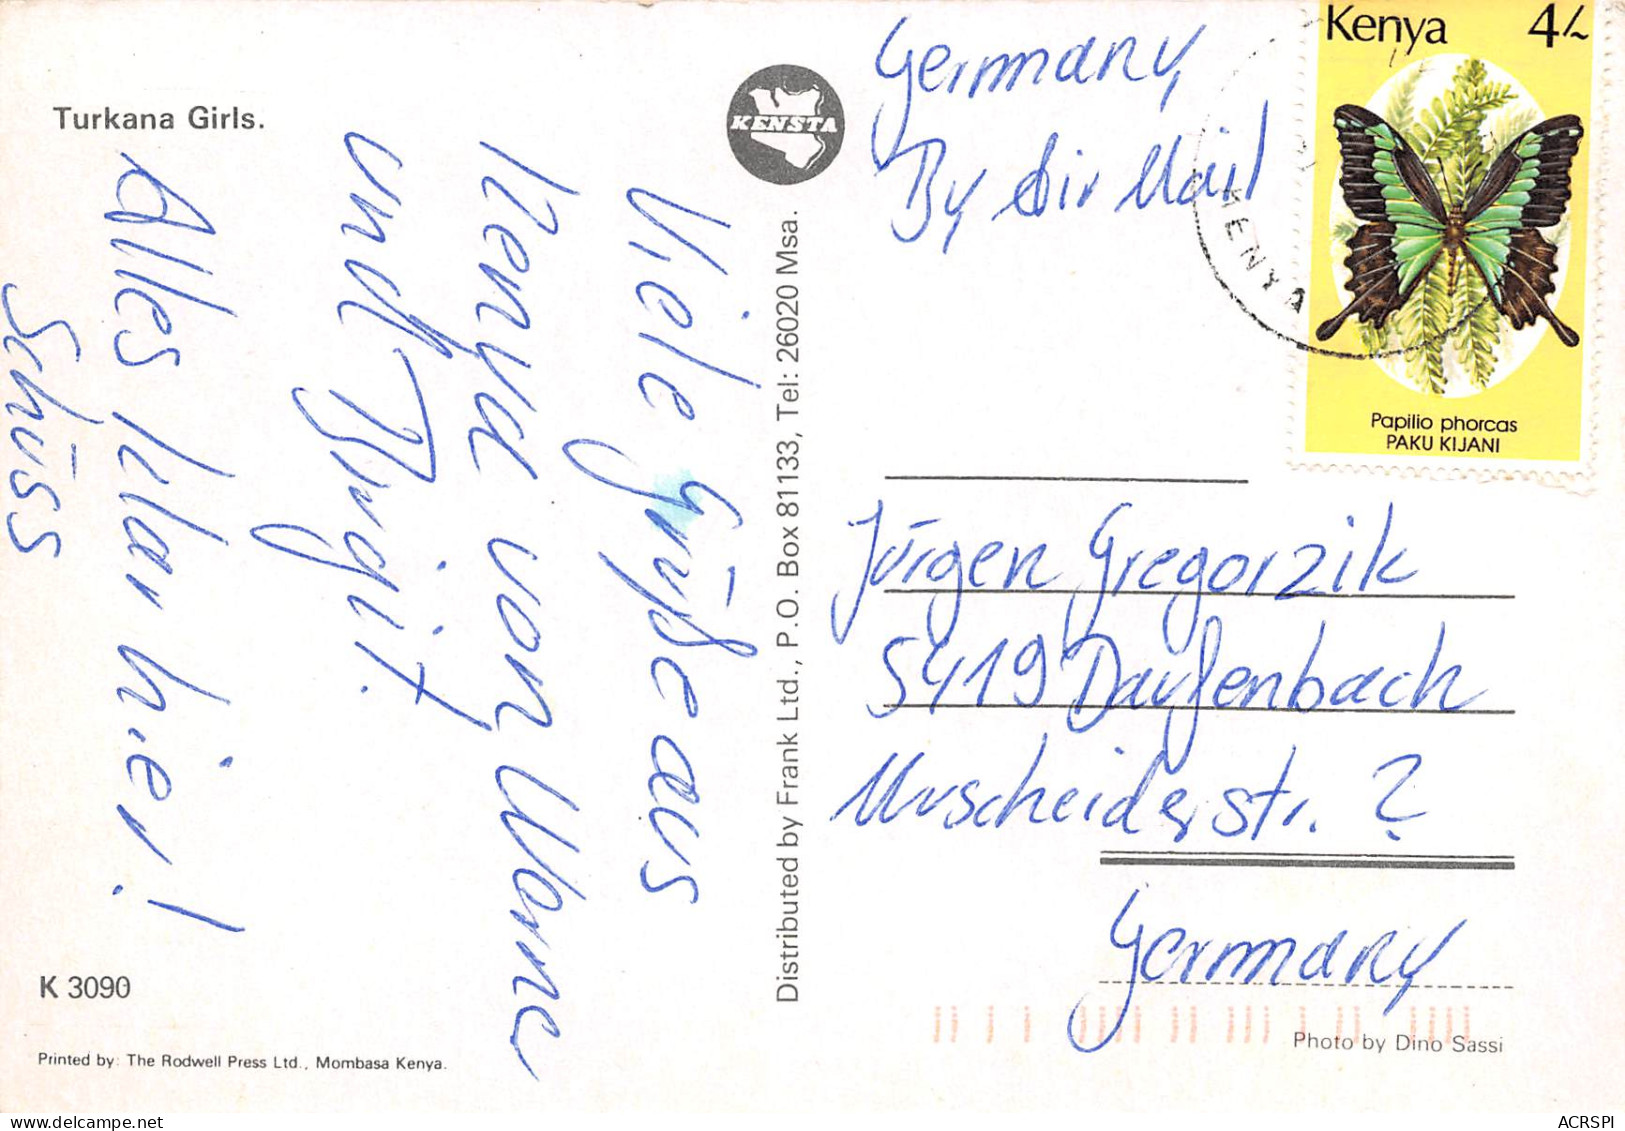 Turkana Girls.
KENSTA
Viele Grüße aus
Kenya von Worne
und Birgit.
Alles klar hier!
Schüss
K 3090
Printed by: The Rodwell Press Ltd., Mombasa Kenya.
Distributed by Frank Ltd., P.O. Box 81133, Tel: 26020 Msa.
Germany
By Air Mail
Kenya 4/-
KENYA
Papilio phorcas
PAKU KIJANI
Jürgen Gregorzik
5419 Daufenbach
Urscheider str. ?
Germany
Photo by Dino Sassi
ACRSPI